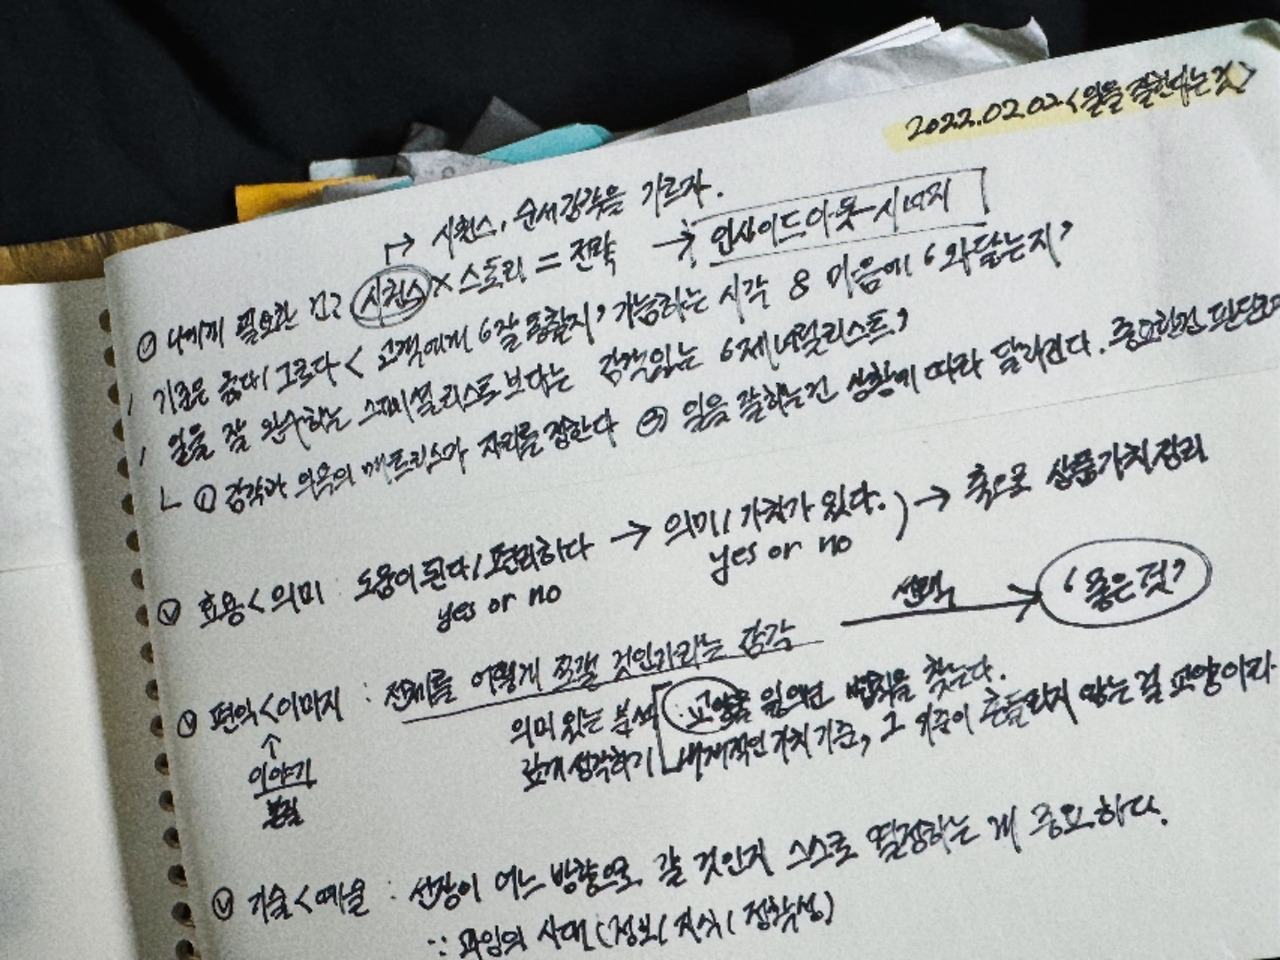 2022.02.02 <일을 잘한다는 것>
↱ 시퀀스, 순서감각을 기르자.
나에게 필요한 건? 시퀀스 × 스토리 = 전략 → 인사이드아웃 시너지
/ 기준은 옳다/그르다 < 고객에게 '잘 통할지' 가늠하는 시각 & 마음에 '와닿는지'
/ 일을 잘 완수하는 스페셜리스트보다는 감각있는 '제너럴리스트'
ㄴ ① 감각과 의욕의 매트리스가 자리를 잡한다 ② 일을 잘하는건 상황에 따라 달라진다. 중요한건 판단
효용 < 의미 : 도움이 된다/편리하다 → 의미/가치가 있다.) → 축으로 상품가치정리
yes or no yes or no
편익 < 이미지 : 전체를 어떻게 쪼갤 것인가라는 감각 선택 → '좋은 것'
↑ 의미 있는 분석 : 교양을 읽으면 법칙을 찾는다.
이야기 생각하기 내재적인 가치기준, 그 기준이 흔들리지 않는 걸 교양이라
본질
기술 < 예술 : 선장이 어느 방향으로 갈 것인지 스스로 결정하는 게 중요하다.
∵ 과잉의 시대 (정보/지식/정확성)